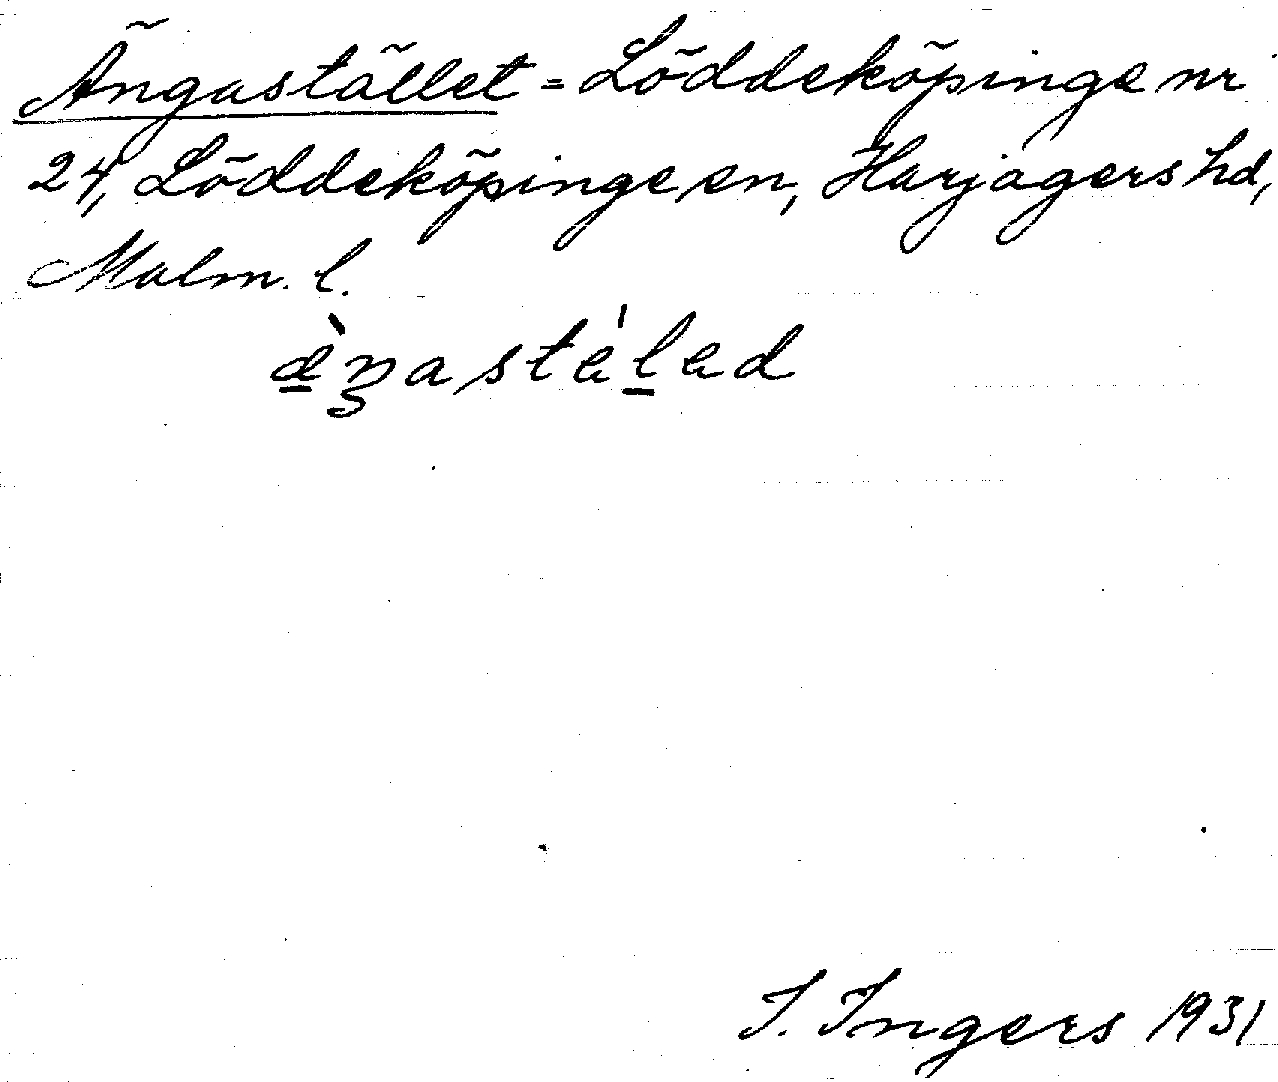 Ängastället = Löddeköpinge nr
24, Löddeköpinge sn, Harjagers hd,
Malm. l.
ä̀ŋastäˈlad
I. Ingers 1931